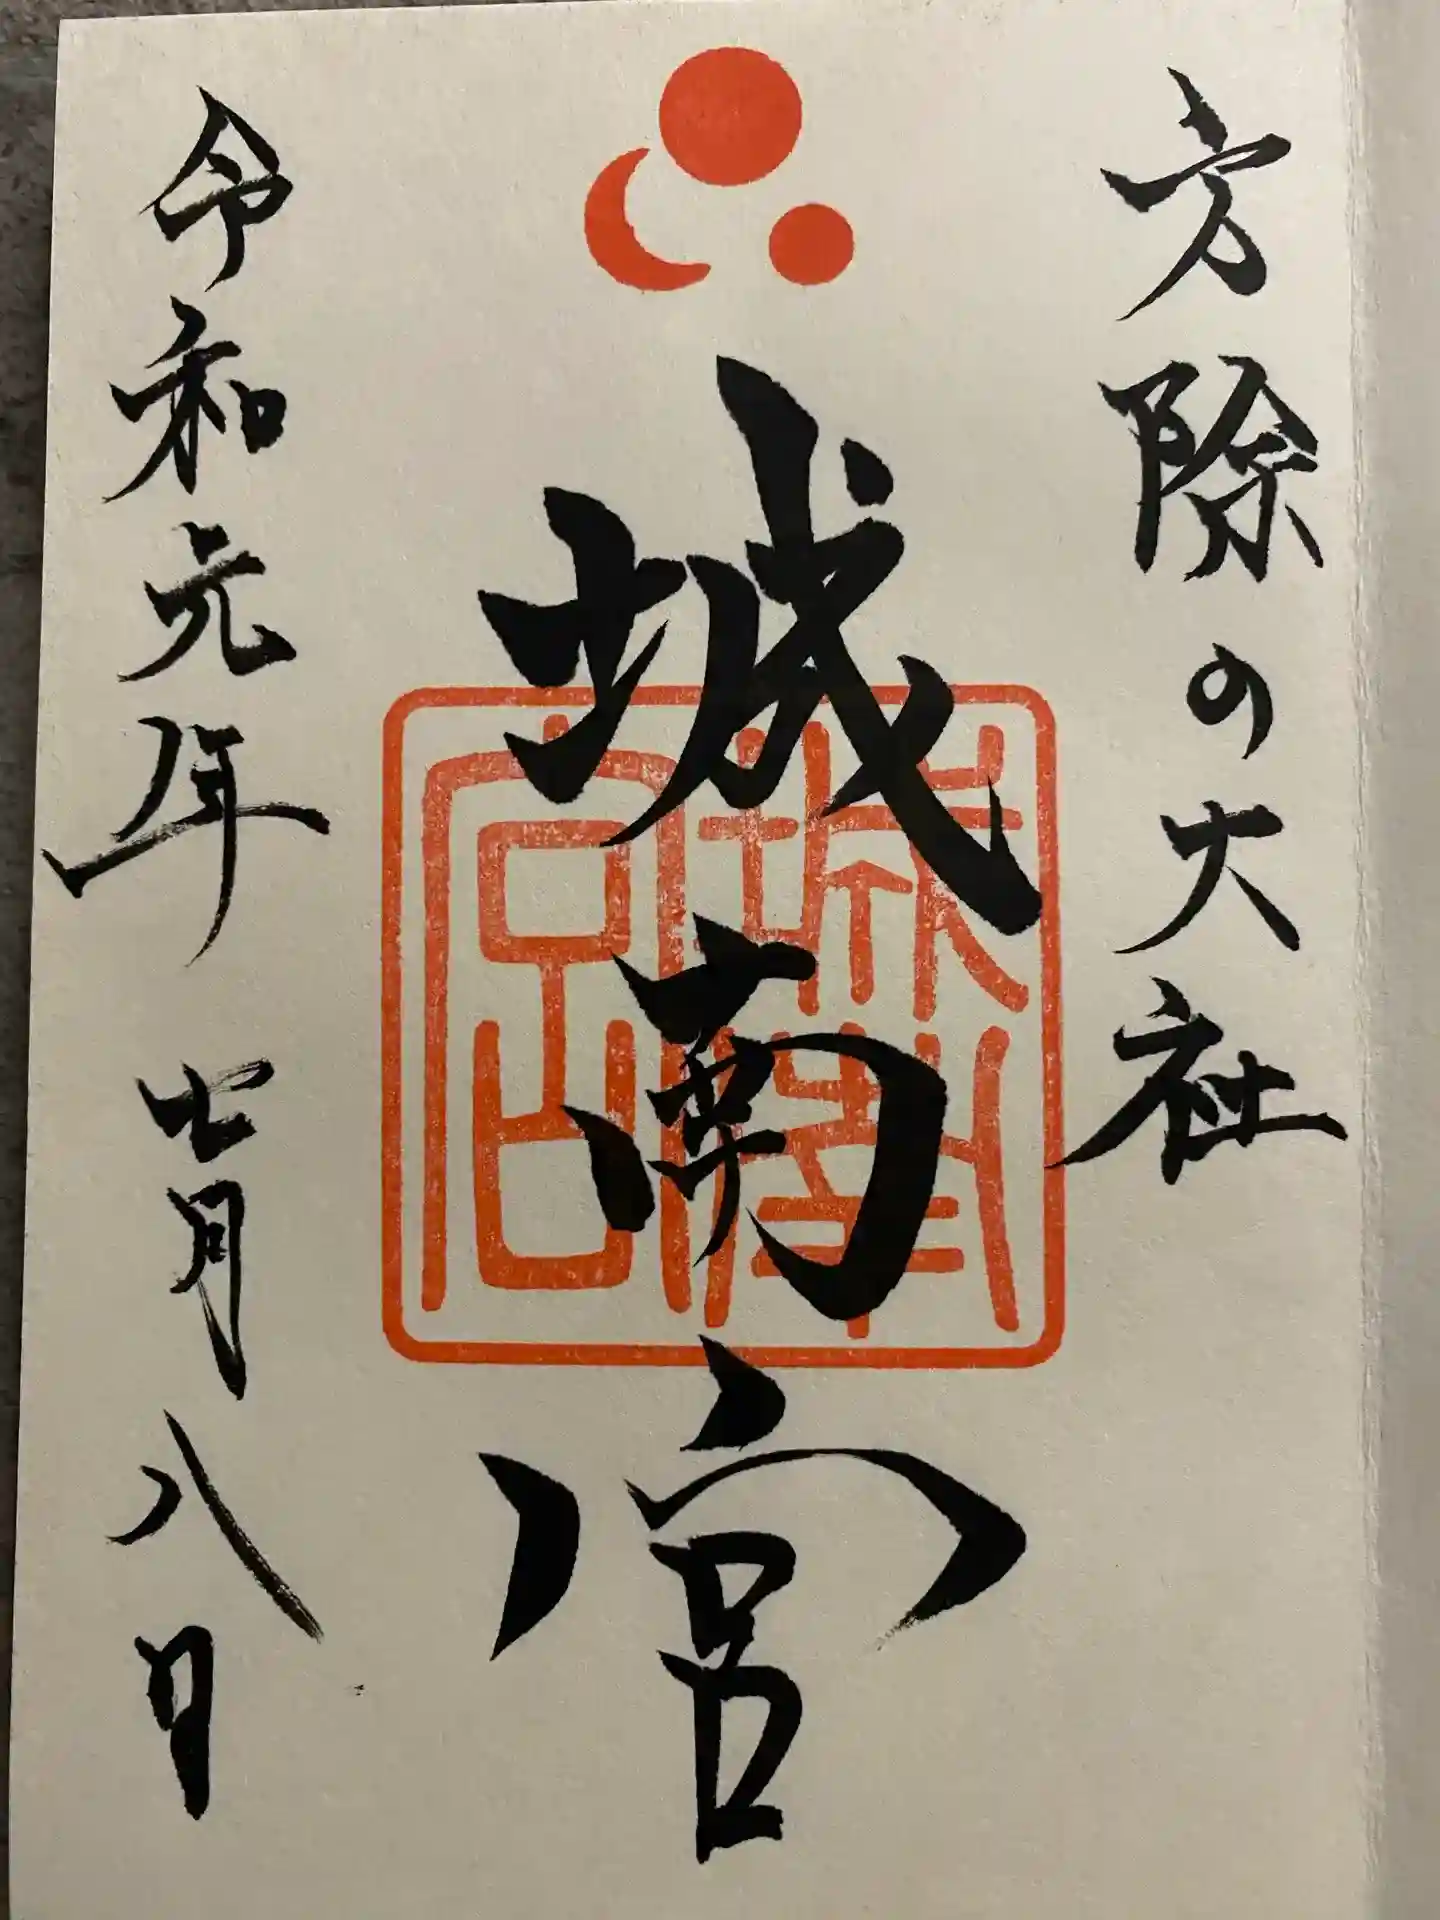 方除の大社
城南宮
城南宮
令和元年 七月八日